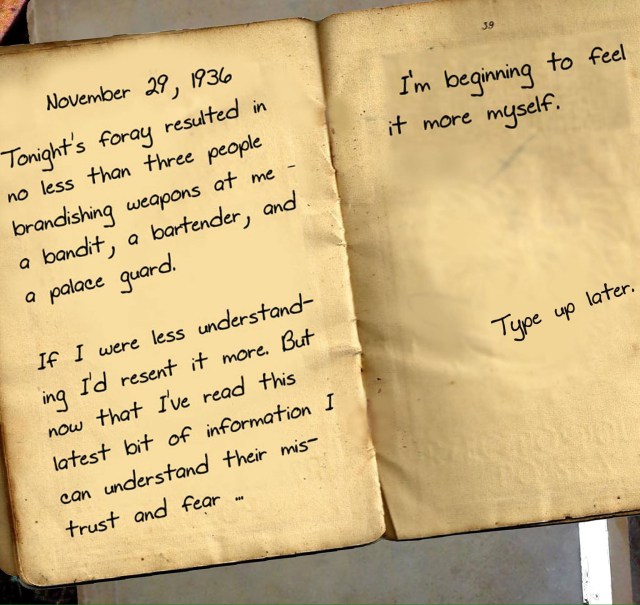 November 29, 1936
Tonight's foray resulted in
no less than three people
brandishing weapons at me -
a bandit, a bartender, and
a palace guard.
If I were less understand-
ing I'd resent it more. But
now that I've read this
latest bit of information I
can understand their mis-
trust and fear ...
39
I'm beginning to feel
it more myself.
Type up later.